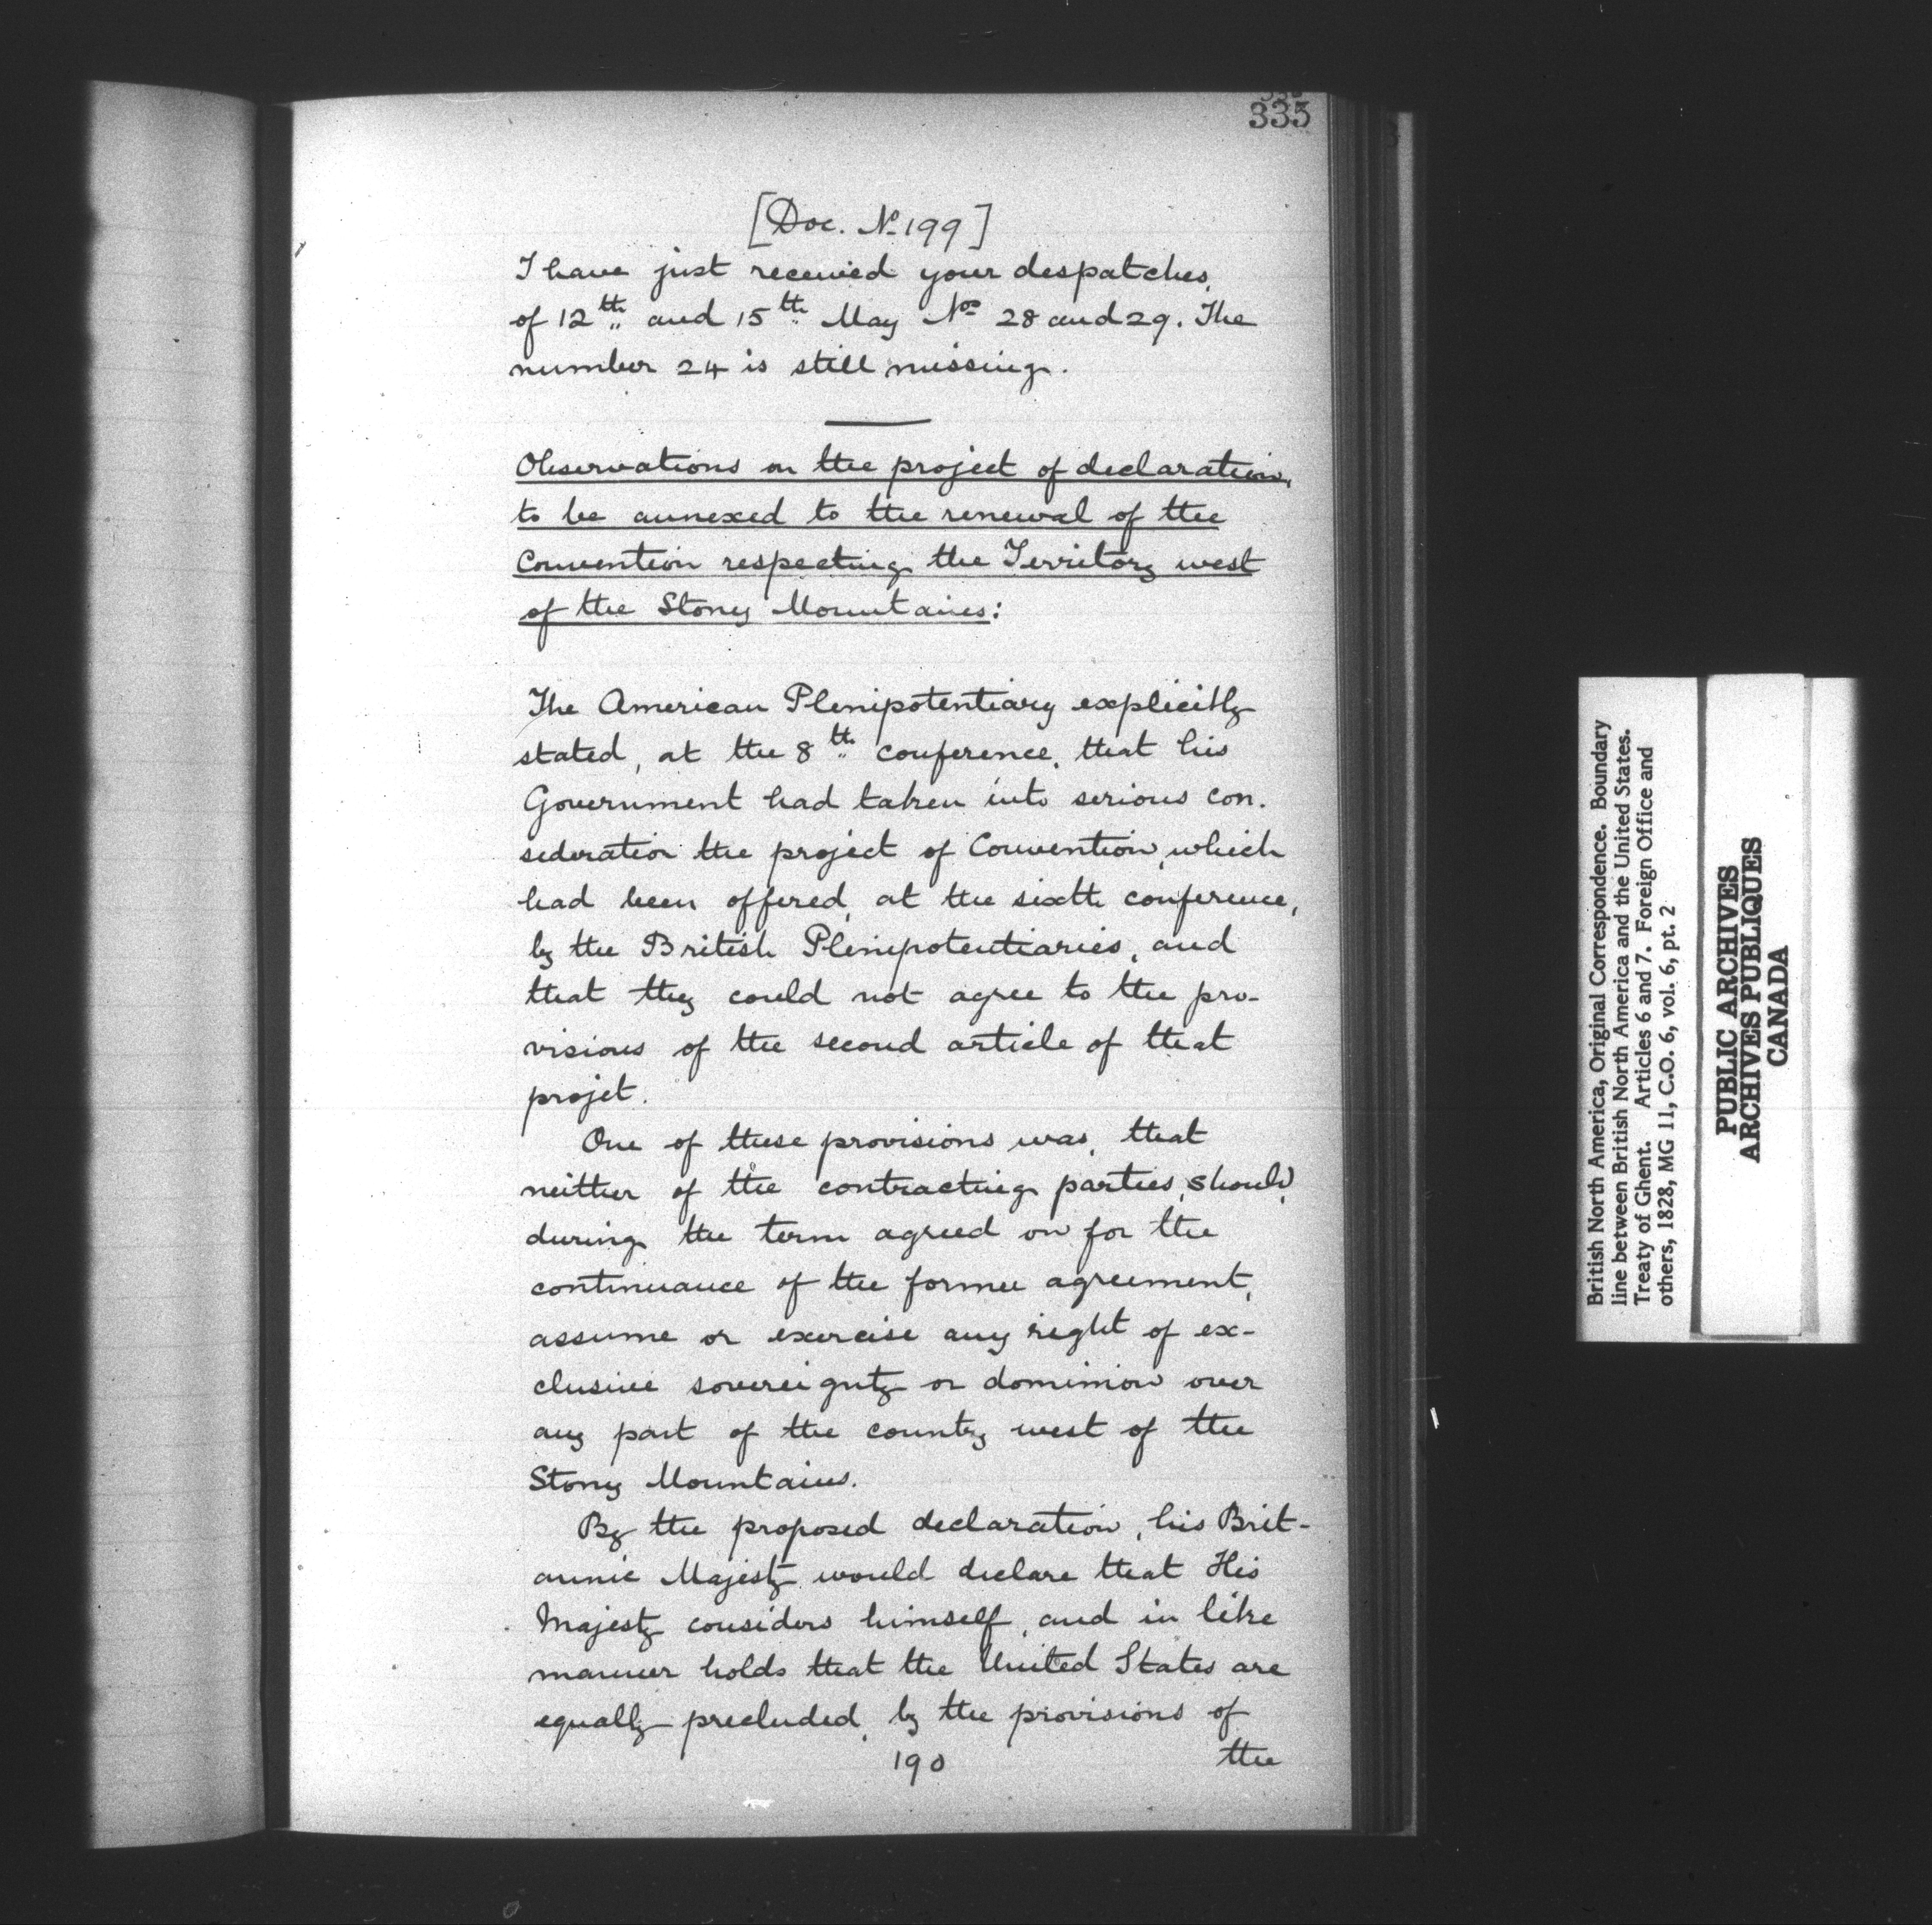 335
[Doc. No. 199]
I have just received your despatches,
of 12th and 15th May Nos 28 and 29. The
number 24 is still missing.
Observations on the project of declaration,
to be annexed to the renewal of the
Convention respecting the Territory west
of the Stony Mountains:
The American Plenipotentiary explicitly
stated, at the 8th conference, that his
Government had taken into serious con-
sideration the project of Convention, which
had been offered, at the sixth conference,
by the British Plenipotentiaries, and
that they could not agree to the pro-
visions of the second article of that
projet.
One of these provisions was, that
neither of the contracting parties, should,
during the term agreed on for the
continuance of the former agreement,
assume or exercise any right of ex-
clusive sovereignty or dominion over
any part of the country west of the
Stony Mountains.
By the proposed declaration, his Brit-
annic Majesty would declare that His
Majesty considers himself, and in like
manner holds that the United States are
equally precluded, by the provisions of
190 the
British North America, Original Correspondence. Boundary
line between British North America and the United States.
Treaty of Ghent. Articles 6 and 7. Foreign Office and
others, 1828, MG 11, C.O. 6, vol. 6, pt. 2
PUBLIC ARCHIVES
ARCHIVES PUBLIQUES
CANADA